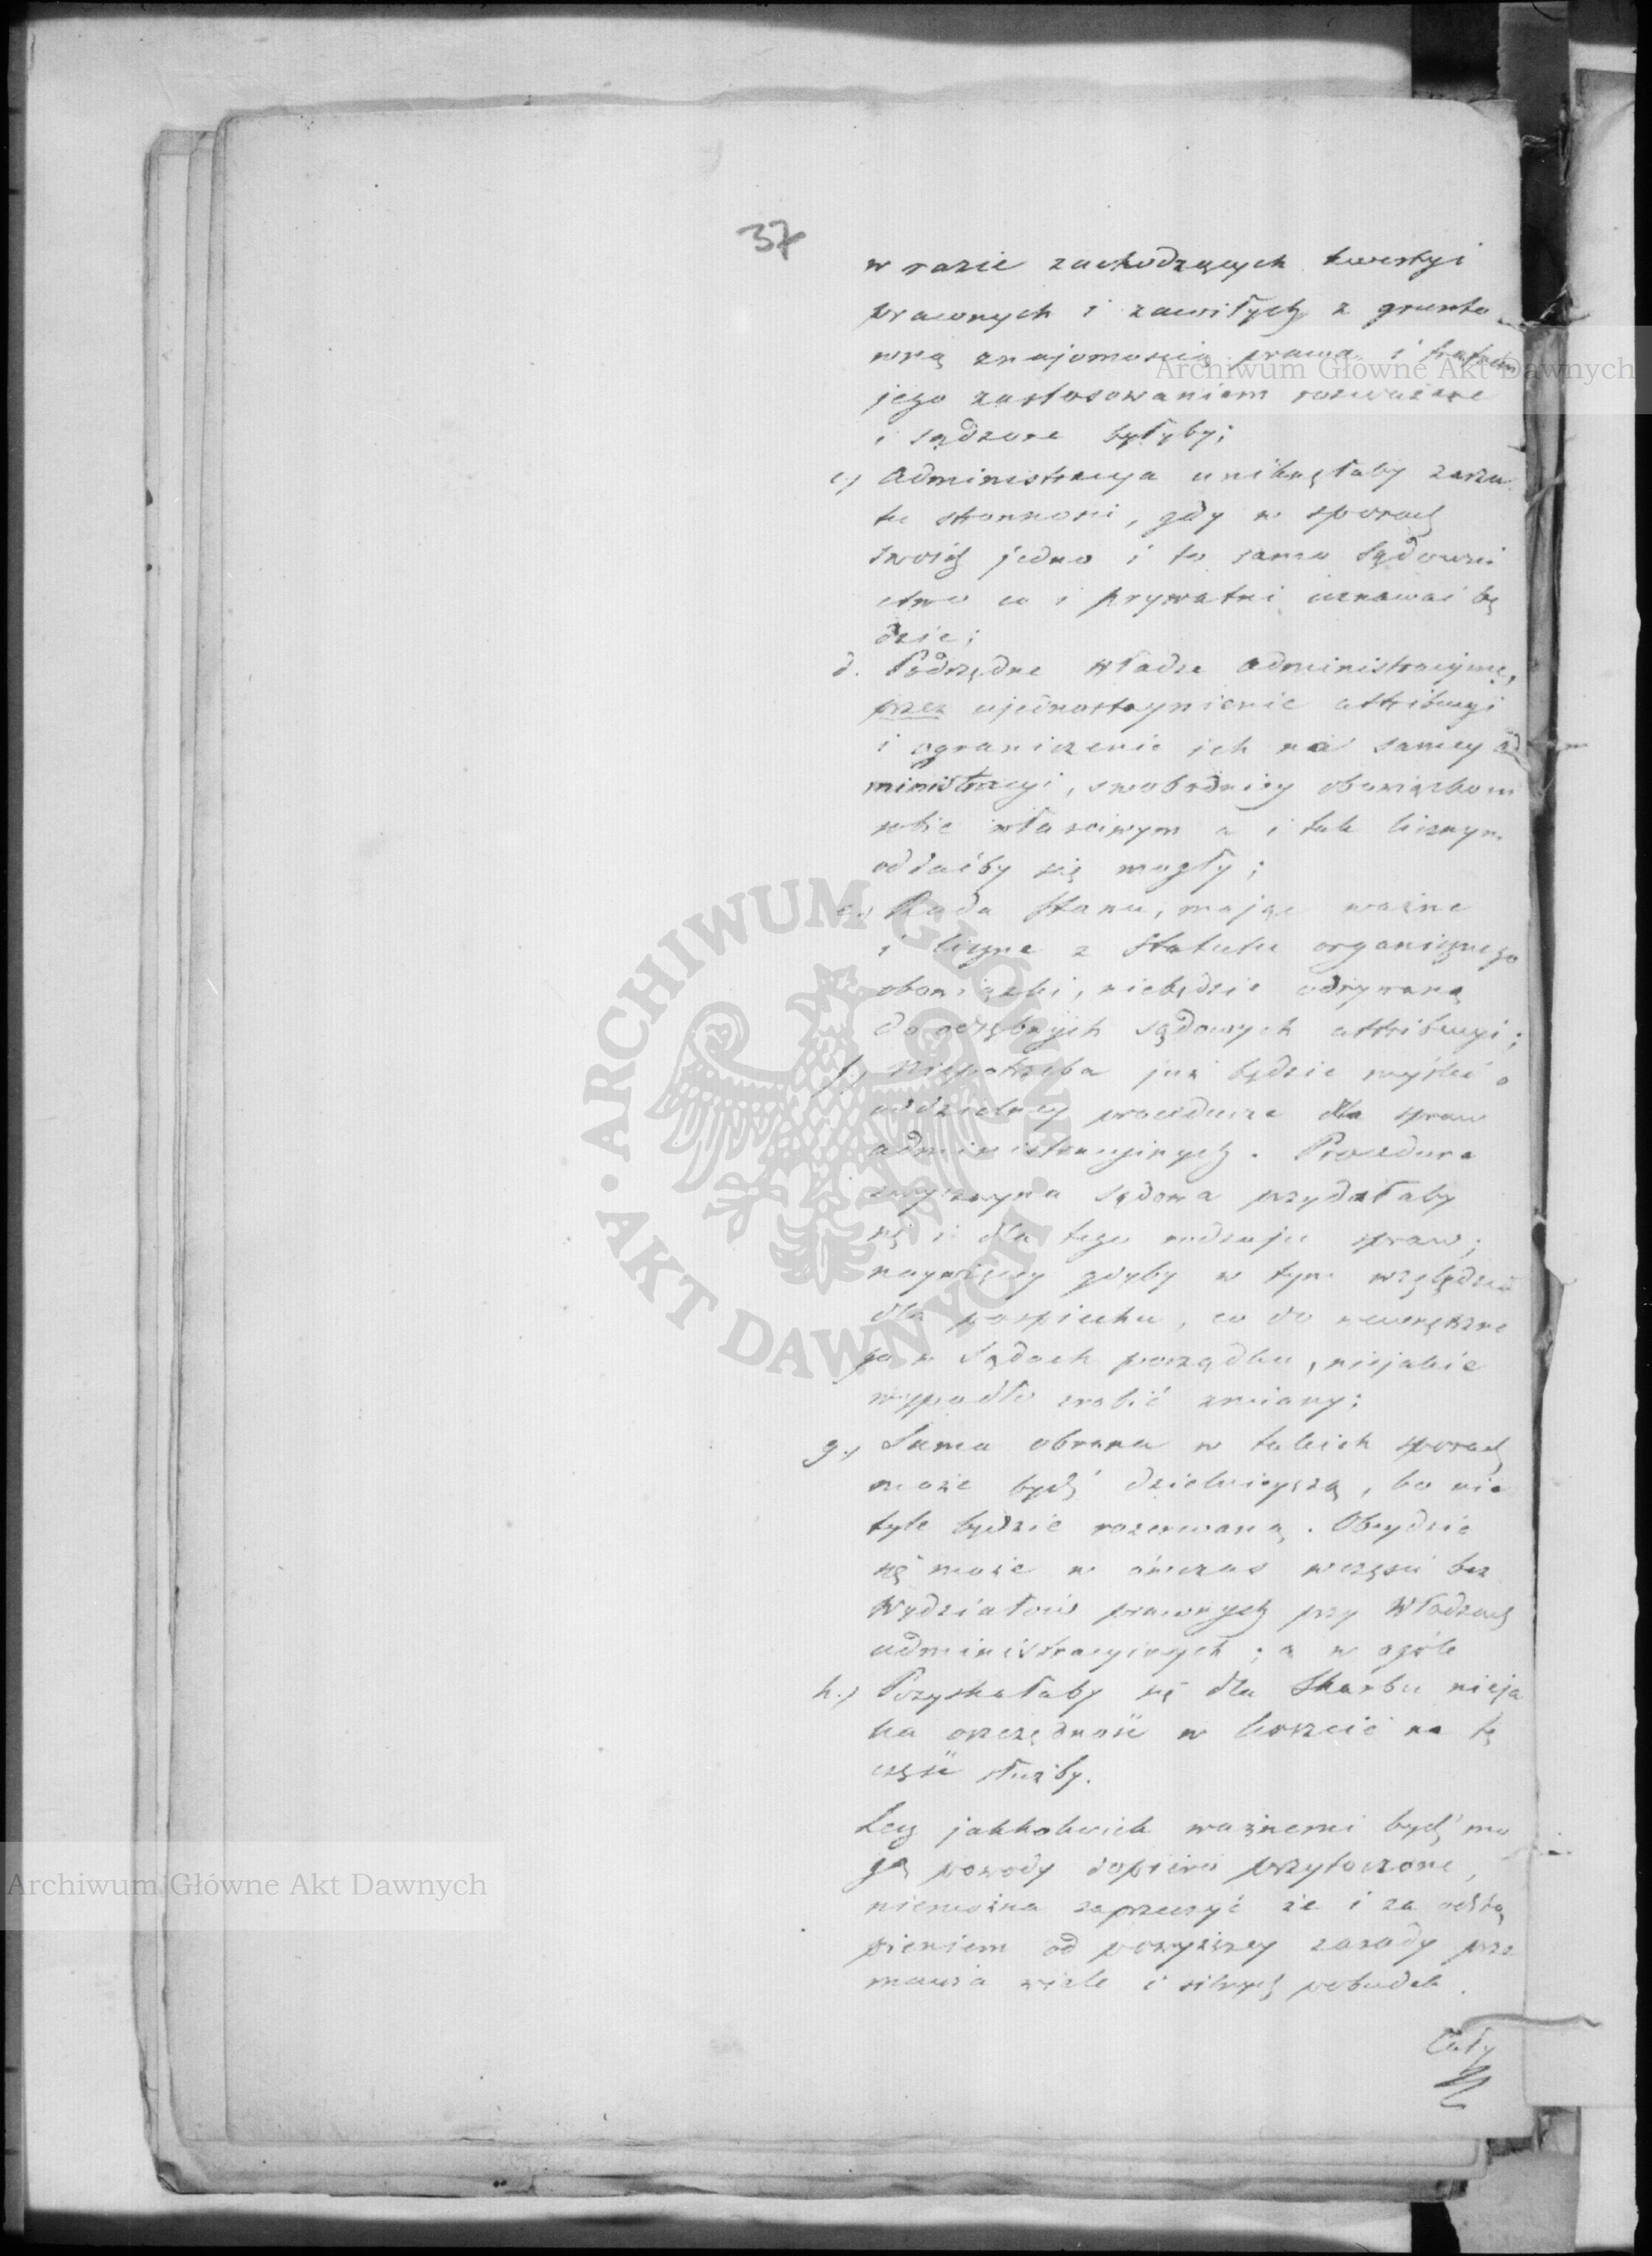 37
w razie zachodzących kwestyi
prawnych i zawiłych z grunto
wną znajomością prawa i trafnem
jego zastosowaniem rozważane
i sądzone byłyby;
c.) Administracya uniknęłaby zarzu
tu stronności, gdy w sporach
swoich jedno i to samo Sądowni
ctwo co i prywatni uznawać bę
dzie;
d. Podrzędne Władze administracyjne,
przez ujednostaynienie attribucyi
i ograniczenie ich na samey ad
ministracyi, swobodniey obowiązkom
sobie właściwym a i tak licznym
oddaćby się mogły;
e.) Rada Stanu, mając ważne
i liczne z Statutu organicznego
obowiązki, niebędzie odrywaną
do odrębnych sądowych attribucyi;
f.) Niepotrzeba już będzie myśleć o
oddzielney procedurze dla spraw
administracyjnych. Procedura
zwyczayna sądowa przydałaby
się i dla tego rodzaju spraw;
naywięcey gdyby w tym względzie
dla pośpiechu, co do wewnętrzne
go w Sądach porządku, niejakie
wypadło zrobić zmiany;
g.) Sama obrona w takich sporach
może bydź dzielnieyszą, bo nie
tyle będzie rozerwaną. Obeydzie
się może w ówczas w części bez
Wydziałów prawnych przy Władzach
administracyjnych; a w ogóle
h.) Pozyskałaby się dla Skarbu nieja
ka oszczędność w koszcie na tę
część służby.
Lecz jakkolwiek ważnemi bydź mo
gą powody dopiero przytoczone,
niemożna zaprzeczyć że i za odstą
pieniem od powyższey zasady prze
mawia wiele i silnych pobudek.
Cały
Archiwum Główne Akt Dawnych
ARCHIWUM GŁÓWNE AKT DAWNYCH
Archiwum Główne Akt Dawnych